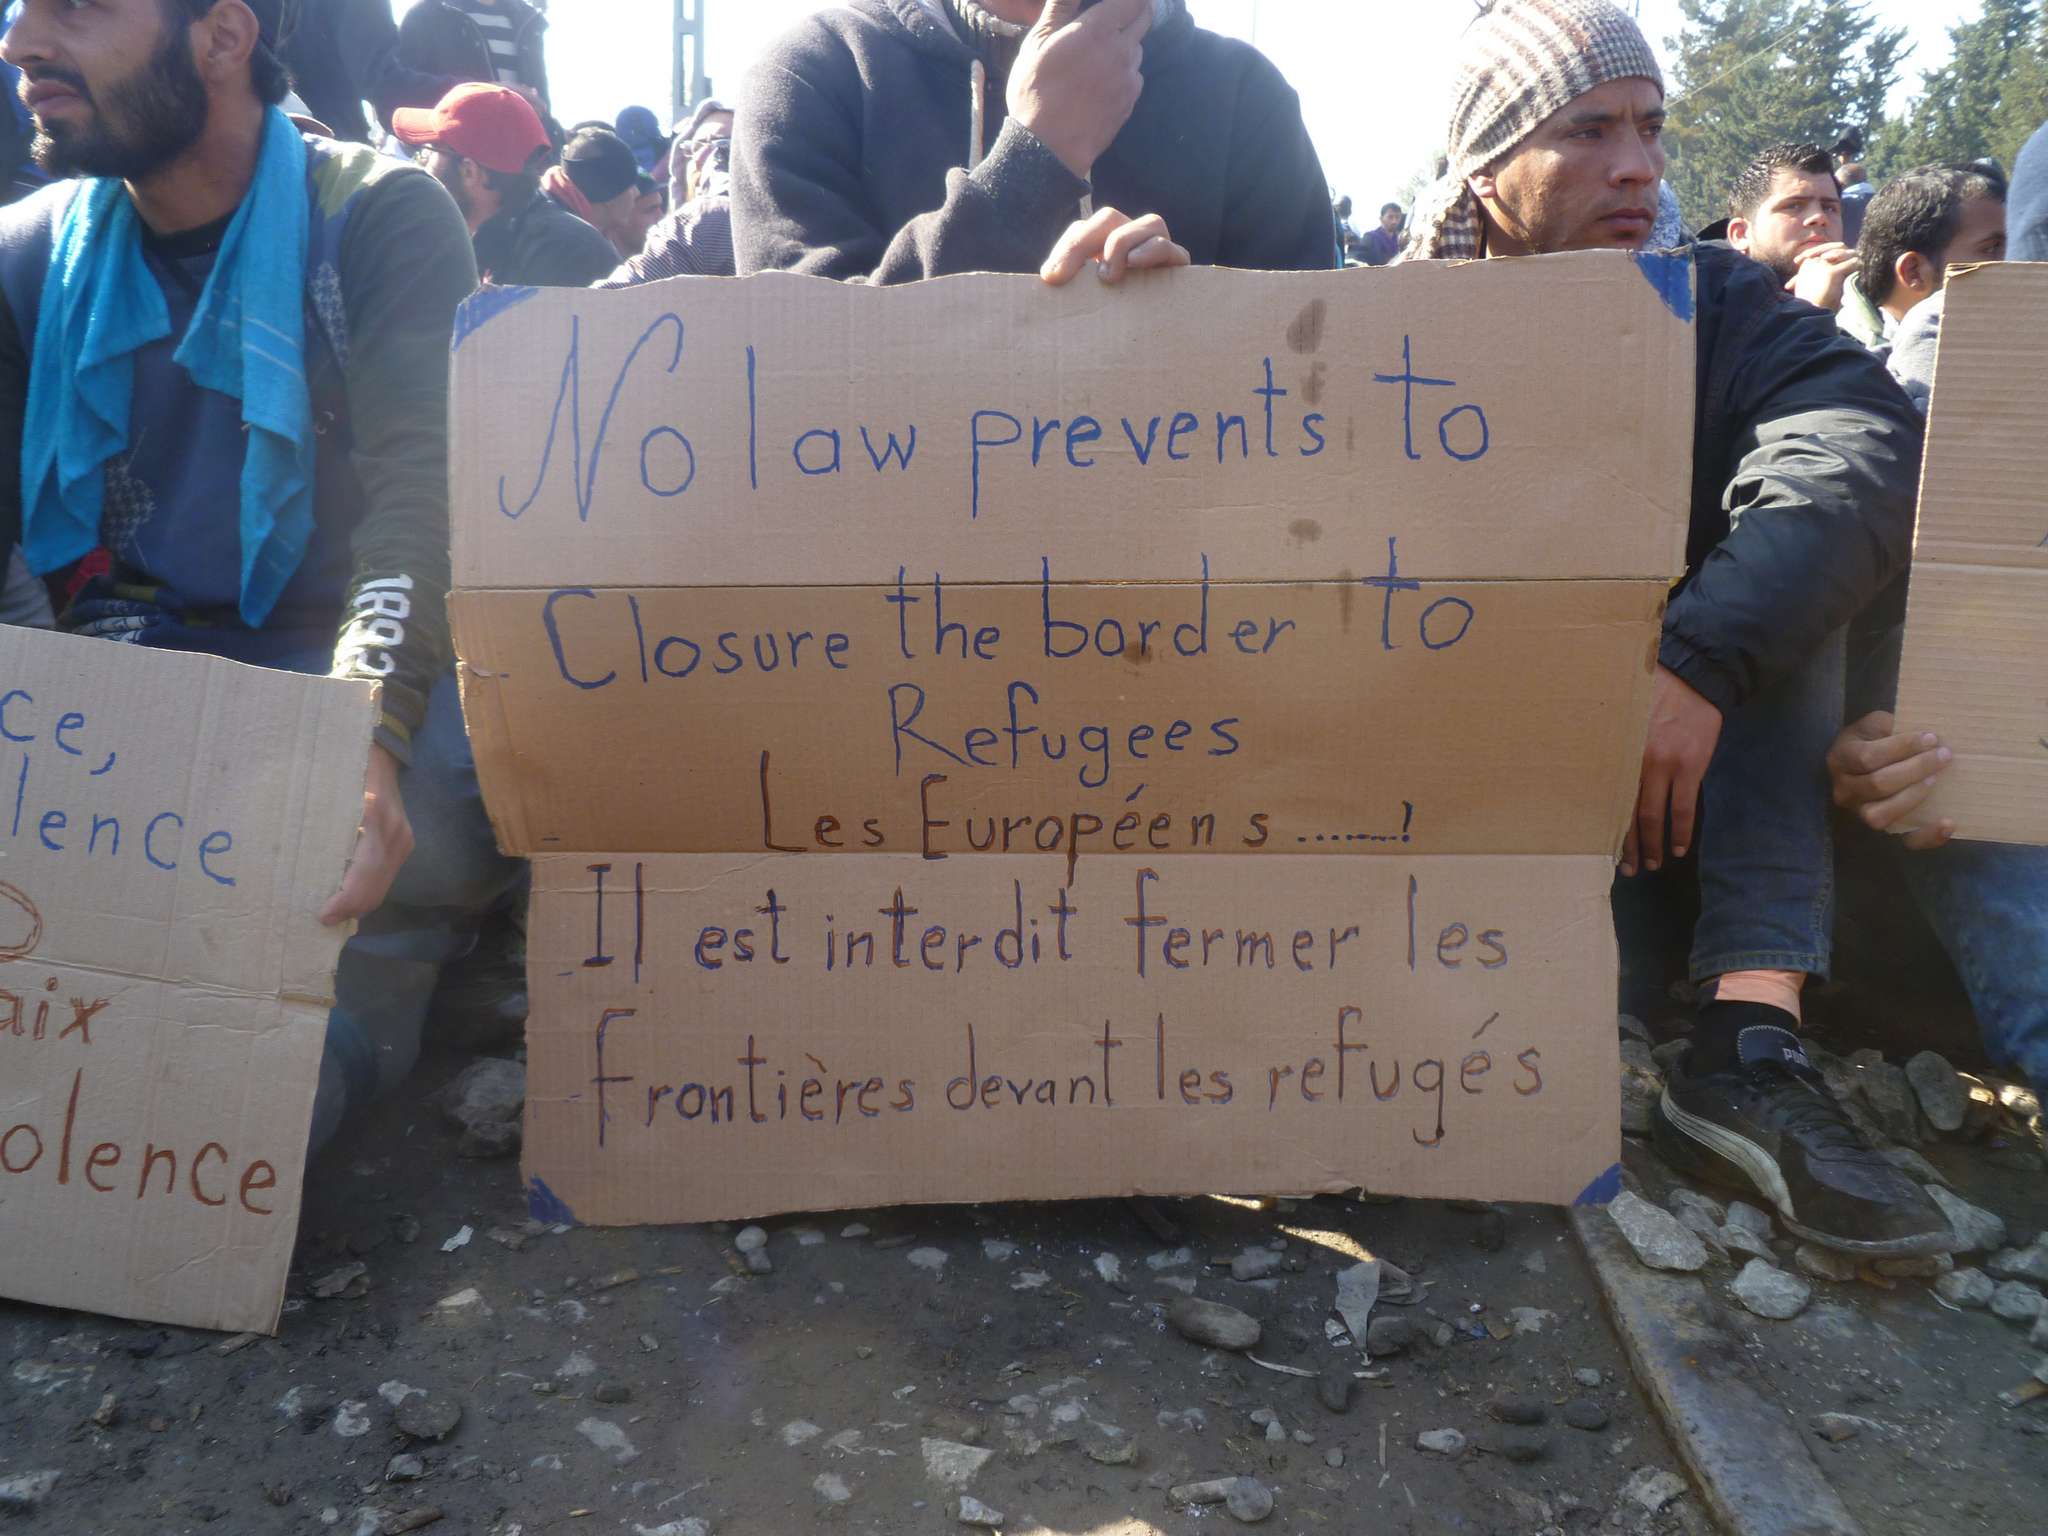 No law prevents to
Closure the border to
Refugees
Les Européens ........!
Il est interdit fermer les
frontières devant les refugés
ce,
lence
aix
olence
1892
PUMA